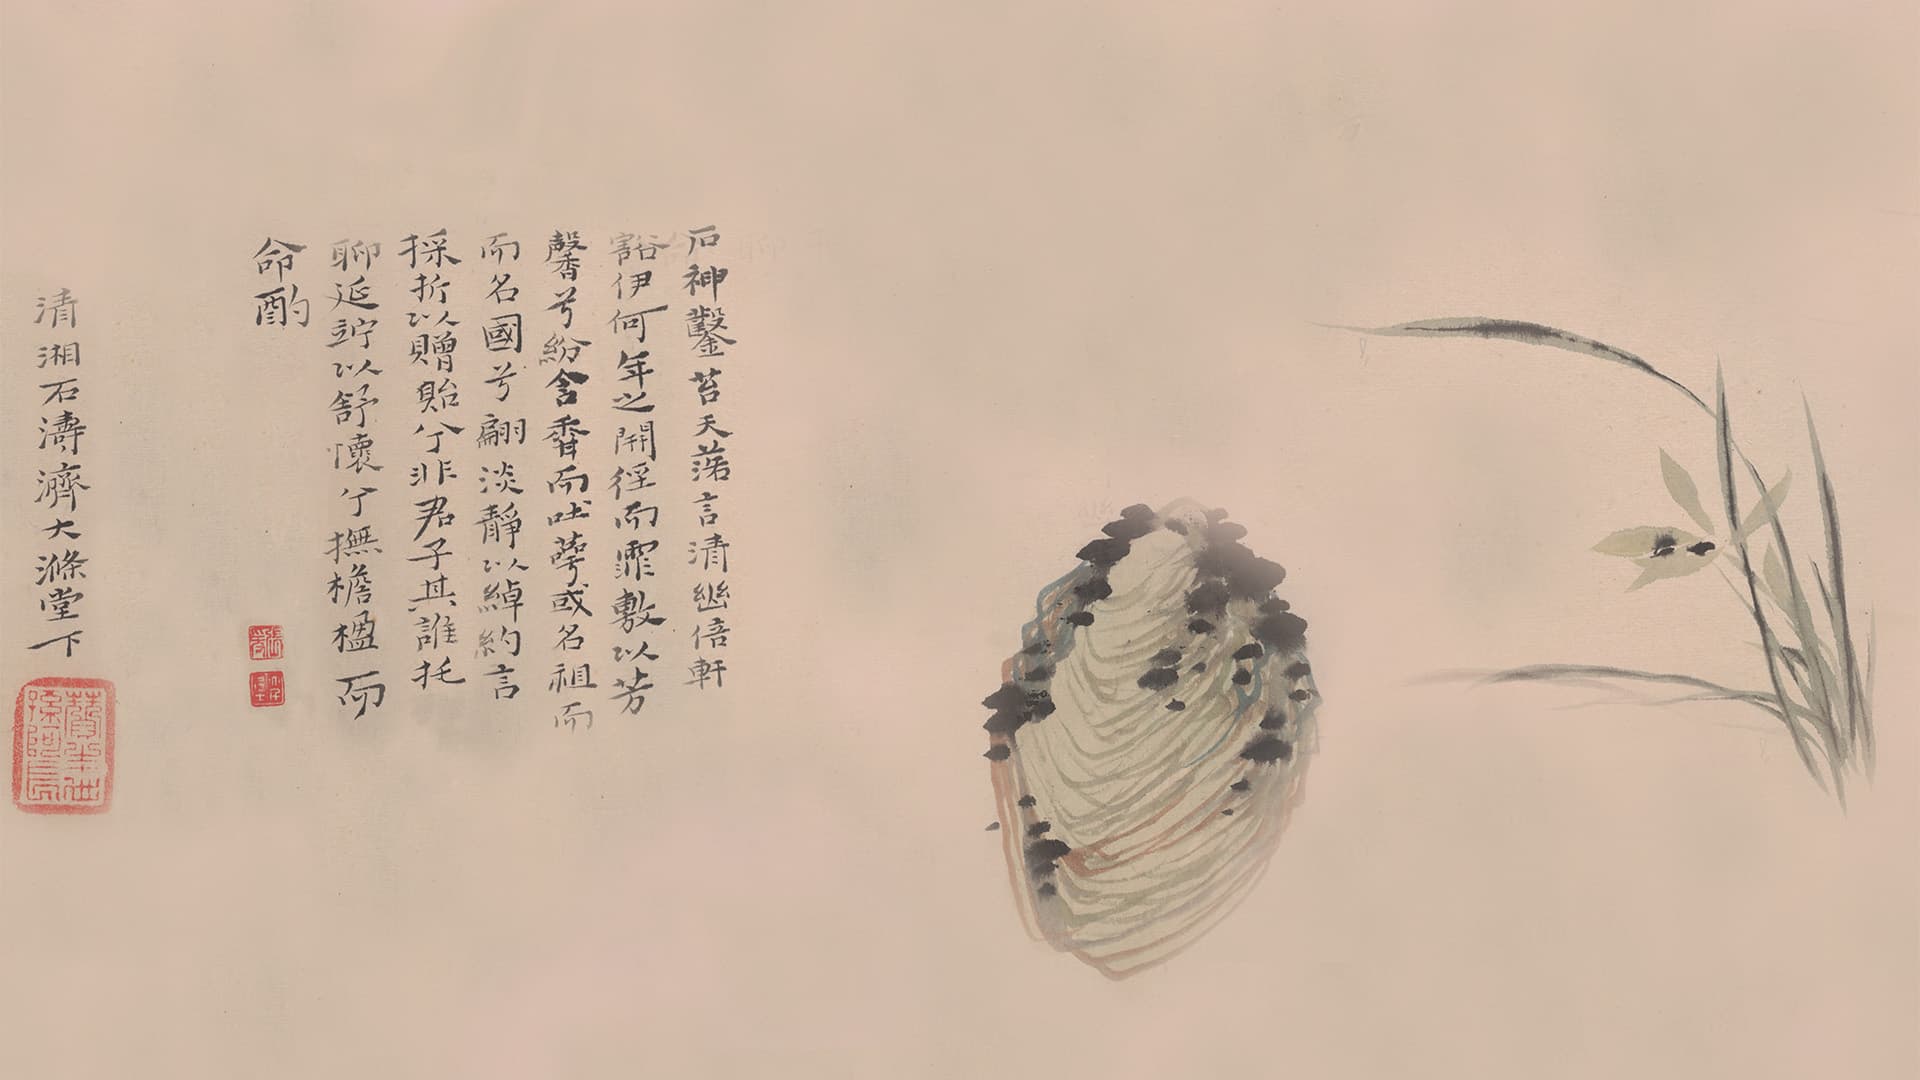 石神鑿苔天落言清幽倍軒
豁伊何年之開徑而霏敷以芳
馨兮紛含香而吐萼或名祖而
而名國兮翩淡靜以綽約言
採折以贈貽兮非君子其誰托
聊延竚以舒懷兮撫檐楹而
命酌
清湘石濤濟大滌堂下